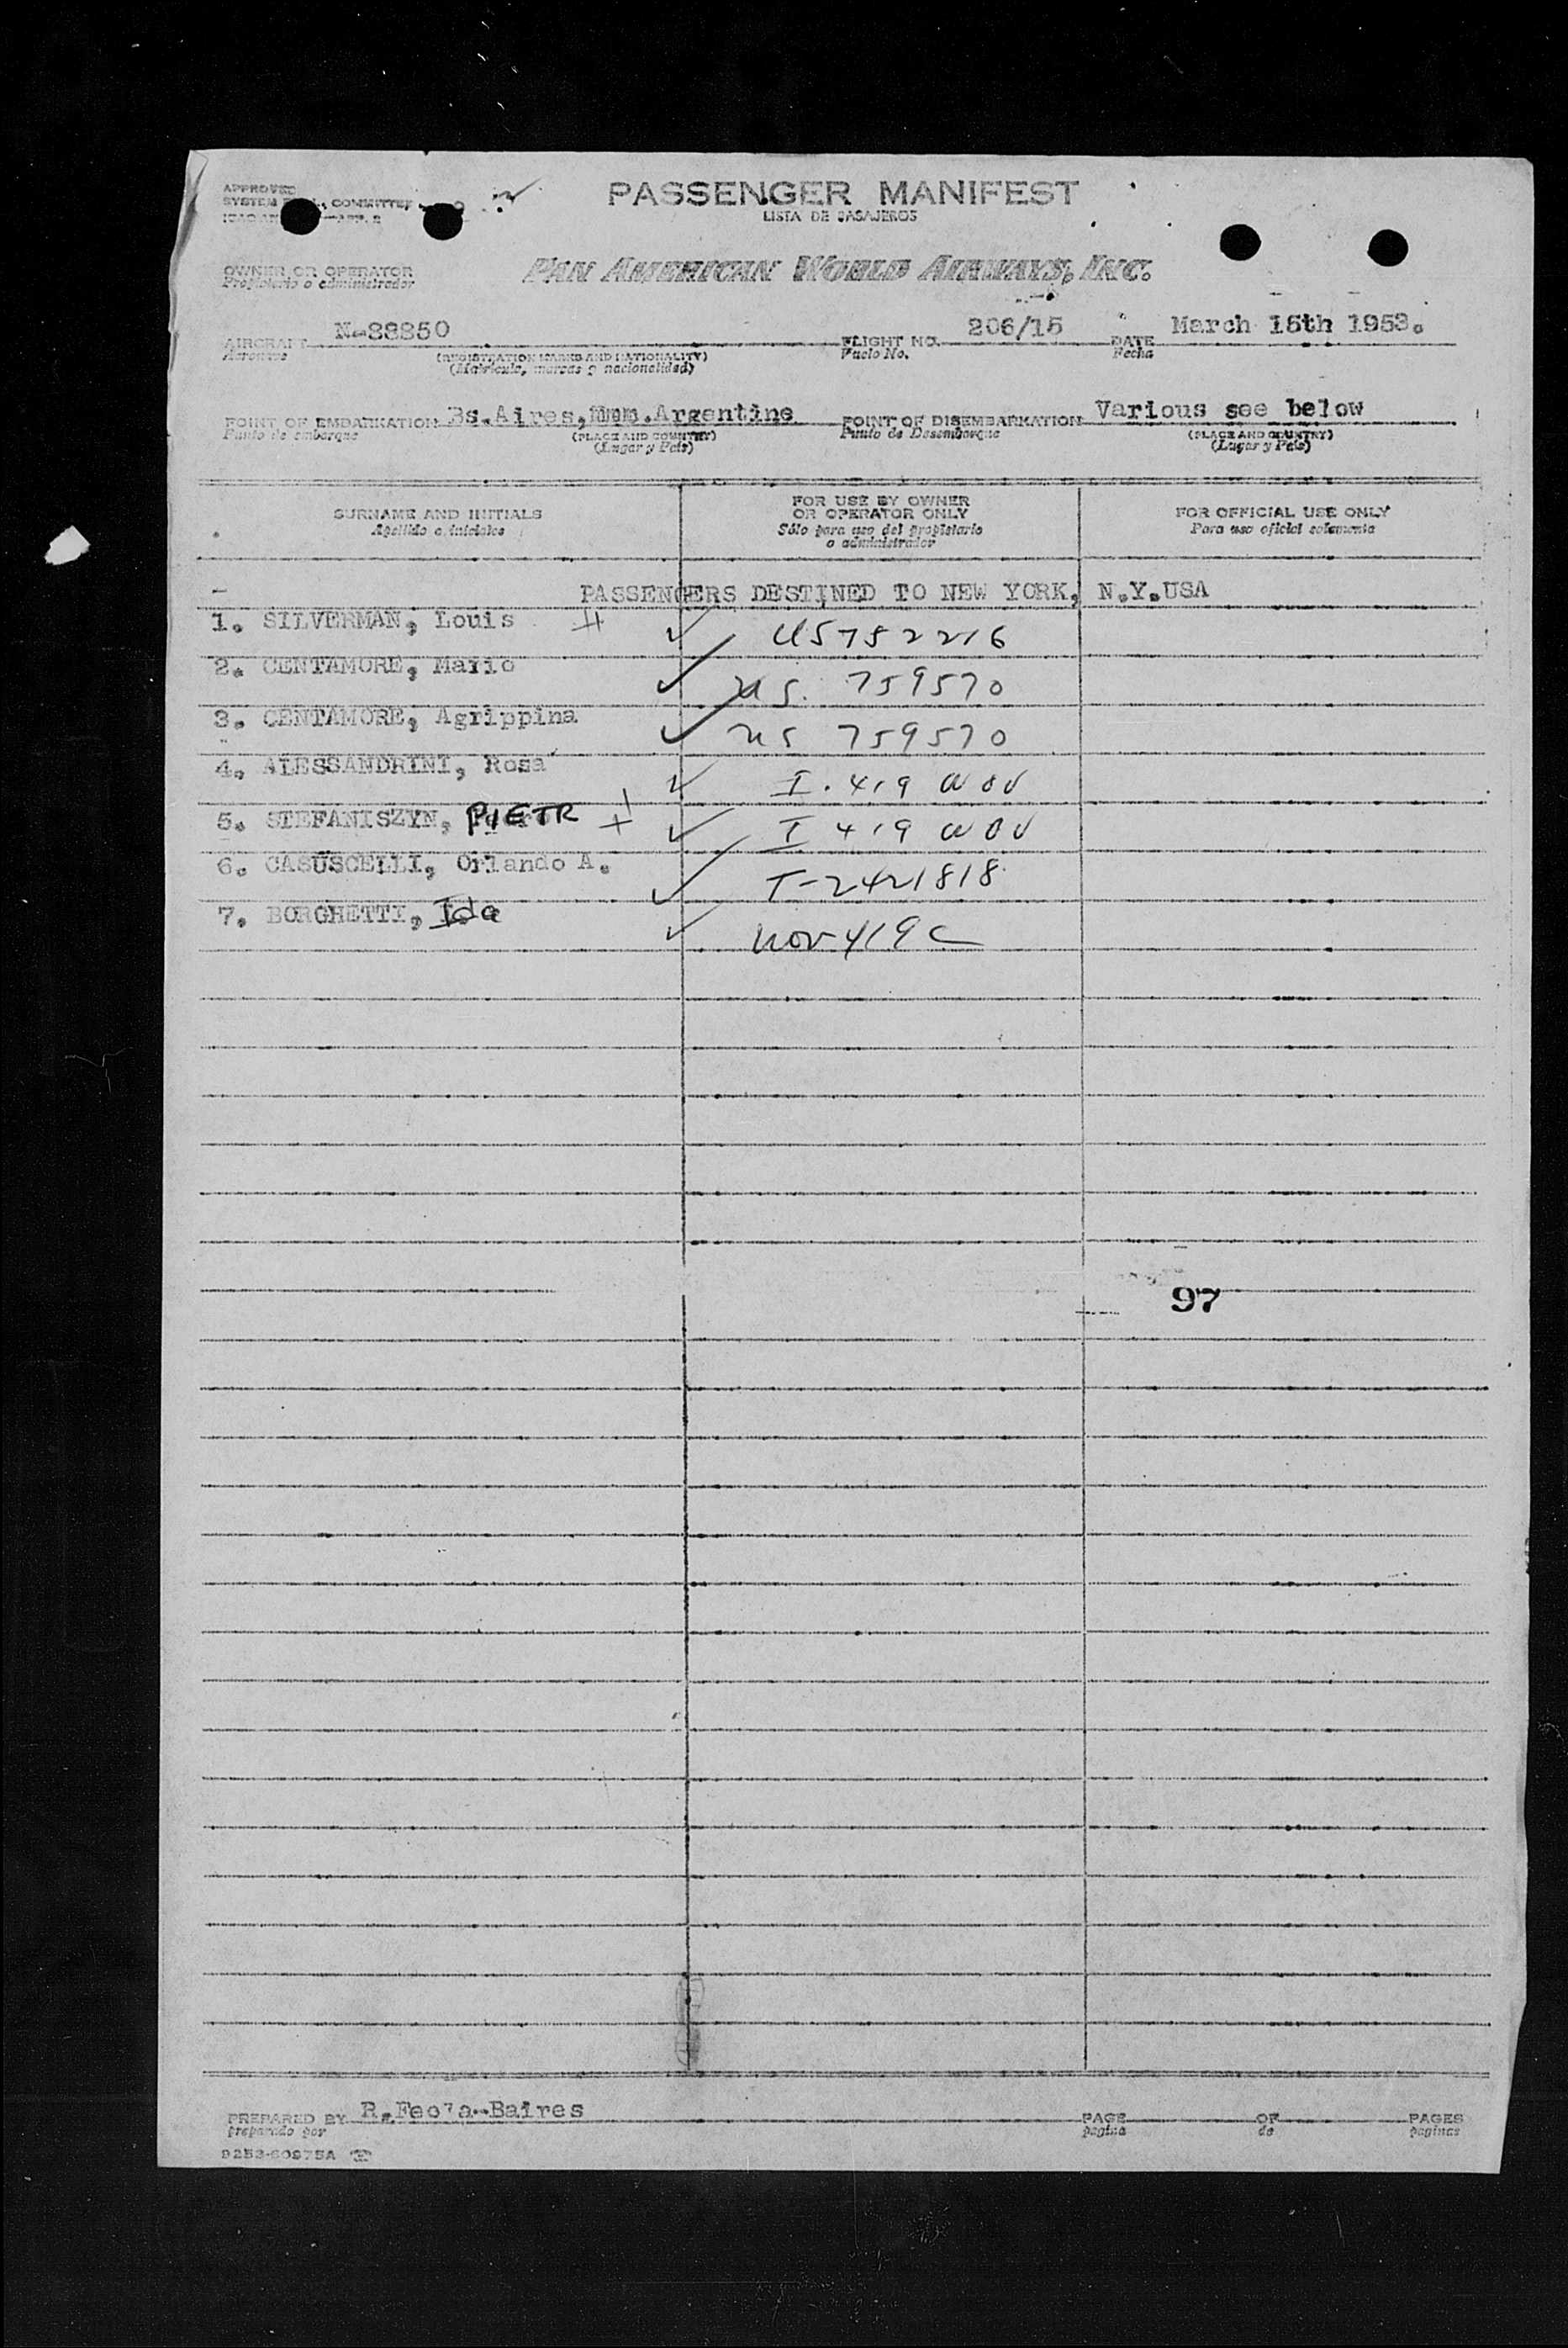 APPROVED
SYSTEM COMMITTEE
PASSENGER MANIFEST
LISTA DE PASAJEROS
OWNER OR OPERATOR
Propietario o administrador
PAN AMERICAN WORLD AIRWAYS, INC.
AIRCRAFT N-88850 FLIGHT NO. 206/15 DATE March 15th 1953.
Aeronave (REGISTRATION MARKS AND NATIONALITY) Vuelo No. Fecha
(Matricula, marcas y nacionalidad)
POINT OF EMBARKATION Bs.Aires, .Argentine POINT OF DISEMBARKATION Various see below
Punto de embarque (PLACE AND COUNTRY) Punto de Desembarque (PLACE AND COUNTRY)
(Lugar y País) (Lugar y País)
SURNAME AND INITIALS
Apellido e iniciales
FOR USE BY OWNER
OR OPERATOR ONLY
Sólo para uso del propietario
o administrador
FOR OFFICIAL USE ONLY
Para uso oficial solamente
PASSENGERS DESTINED TO NEW YORK, N.Y.USA
1. SILVERMAN, Louis US752216
2. CENTAMORE, Mario US. 759570
3. CENTAMORE, Agrippina US 759570
4. ALESSANDRINI, Rosa I. 419
5. STEFANISZYN, PIETR I 419
6. CASUSCELLI, Orlando A. T-2421818
7. BORGHETTI, Ida nov 419 C
97
PREPARED BY R.Feola-Baires PAGE OF PAGES
preparado por pagina de paginas
9253-60975A